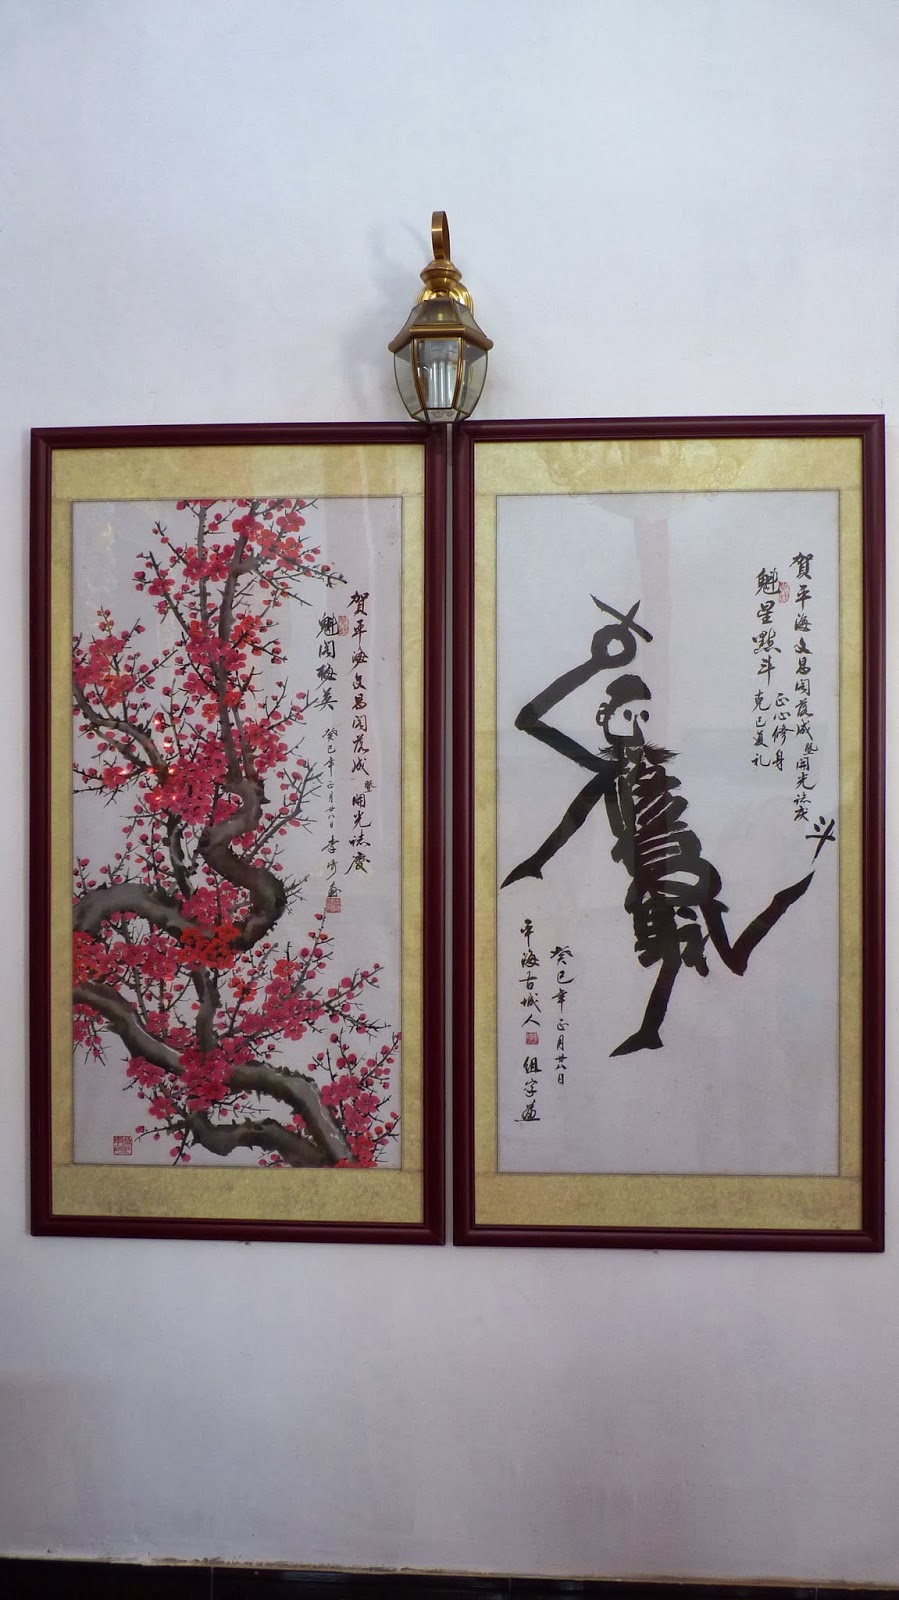 賀平海文昌阁落成暨開光誌慶
魁阁梅英
癸巳年正月廿八日
李
賀平海文昌阁落成暨開光誌庆
魁星點斗
正心修身
克己复礼
癸巳年正月廿八日
平海古城人
组字画